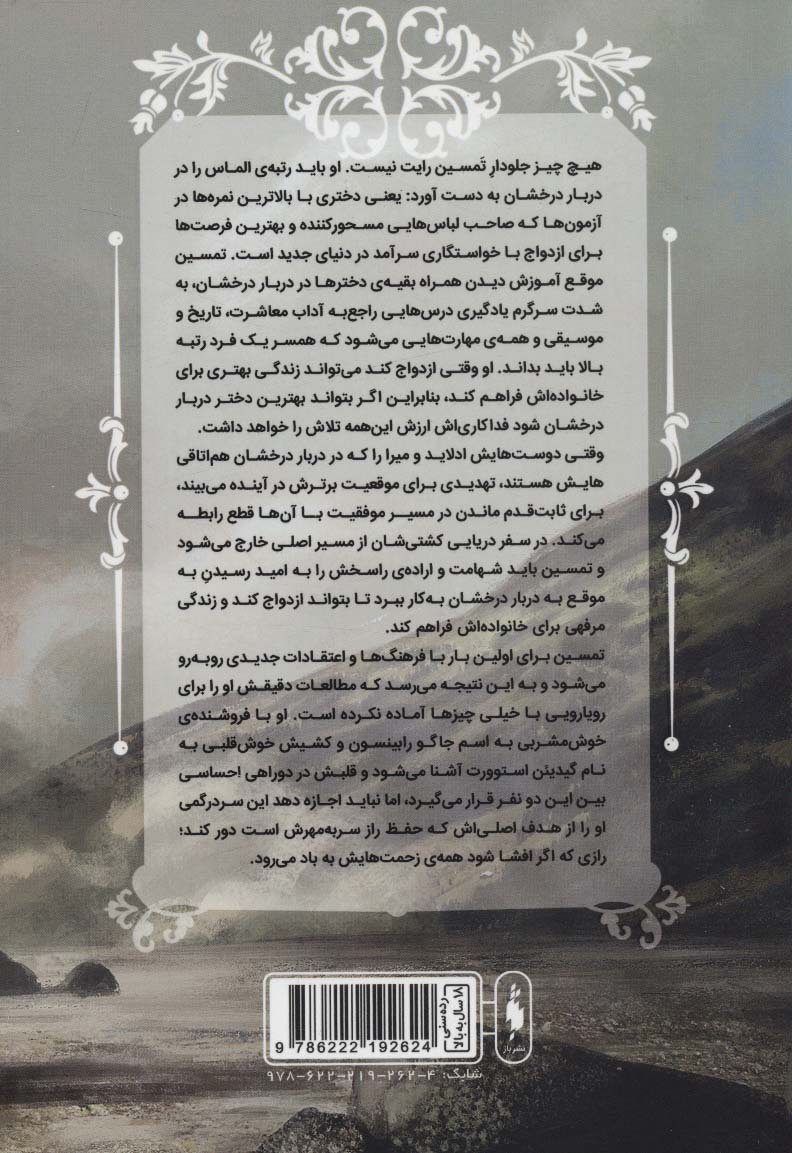 هیچ چیز جلودارِ تَمسین رایت نیست. او باید رتبه‌ی الماس را در
دربار درخشان به دست آورد: یعنی دختری با بالاترین نمره‌ها در
آزمون‌ها که صاحب لباس‌هایی مسحورکننده و بهترین فرصت‌ها
برای ازدواج با خواستگاری سرآمد در دنیای جدید است. تمسین
موقع آموزش دیدن همراه بقیه‌ی دخترها در دربار درخشان، به
شدت سرگرم یادگیری درس‌هایی راجع‌به آداب معاشرت، تاریخ و
موسیقی و همه‌ی مهارت‌هایی می‌شود که همسر یک فرد رتبه
بالا باید بداند. او وقتی ازدواج کند می‌تواند زندگی بهتری برای
خانواده‌اش فراهم کند، بنابراین اگر بتواند بهترین دختر دربار
درخشان شود فداکاری‌اش ارزش این‌همه تلاش را خواهد داشت.
وقتی دوست‌هایش ادلاید و میرا را که در دربار درخشان هم‌اتاقی
هایش هستند، تهدیدی برای موقعیت برترش در آینده می‌بیند،
برای ثابت‌قدم ماندن در مسیر موفقیت با آن‌ها قطع رابطه
می‌کند. در سفر دریایی کشتی‌شان از مسیر اصلی خارج می‌شود
و تمسین باید شهامت و اراده‌ی راسخش را به امید رسیدنِ به
موقع به دربار درخشان به‌کار ببرد تا بتواند ازدواج کند و زندگی
مرفهی برای خانواده‌اش فراهم کند.
تمسین برای اولین بار با فرهنگ‌ها و اعتقادات جدیدی روبه‌رو
می‌شود و به این نتیجه می‌رسد که مطالعات دقیقش او را برای
رویارویی با خیلی چیزها آماده نکرده است. او با فروشنده‌ی
خوش‌مشربی به اسم جاگو رابینسون و کشیش خوش‌قلبی به
نام گیدیئن استوورت آشنا می‌شود و قلبش در دوراهی اِحساسی
بین این دو نفر قرار می‌گیرد، اما نباید اجازه دهد این سردرگمی
او را از هدف اصلی‌اش که حفظ راز سربه‌مهرش است دور کند؛
رازی که اگر افشا شود همه‌ی زحمت‌هایش به باد می‌رود.
رده‌سنی
۱۸ سال به بالا
نشر باژ
9 786222 192624
شابک: ۹۷۸-۶۲۲-۲۱۹-۲۶۲-۴